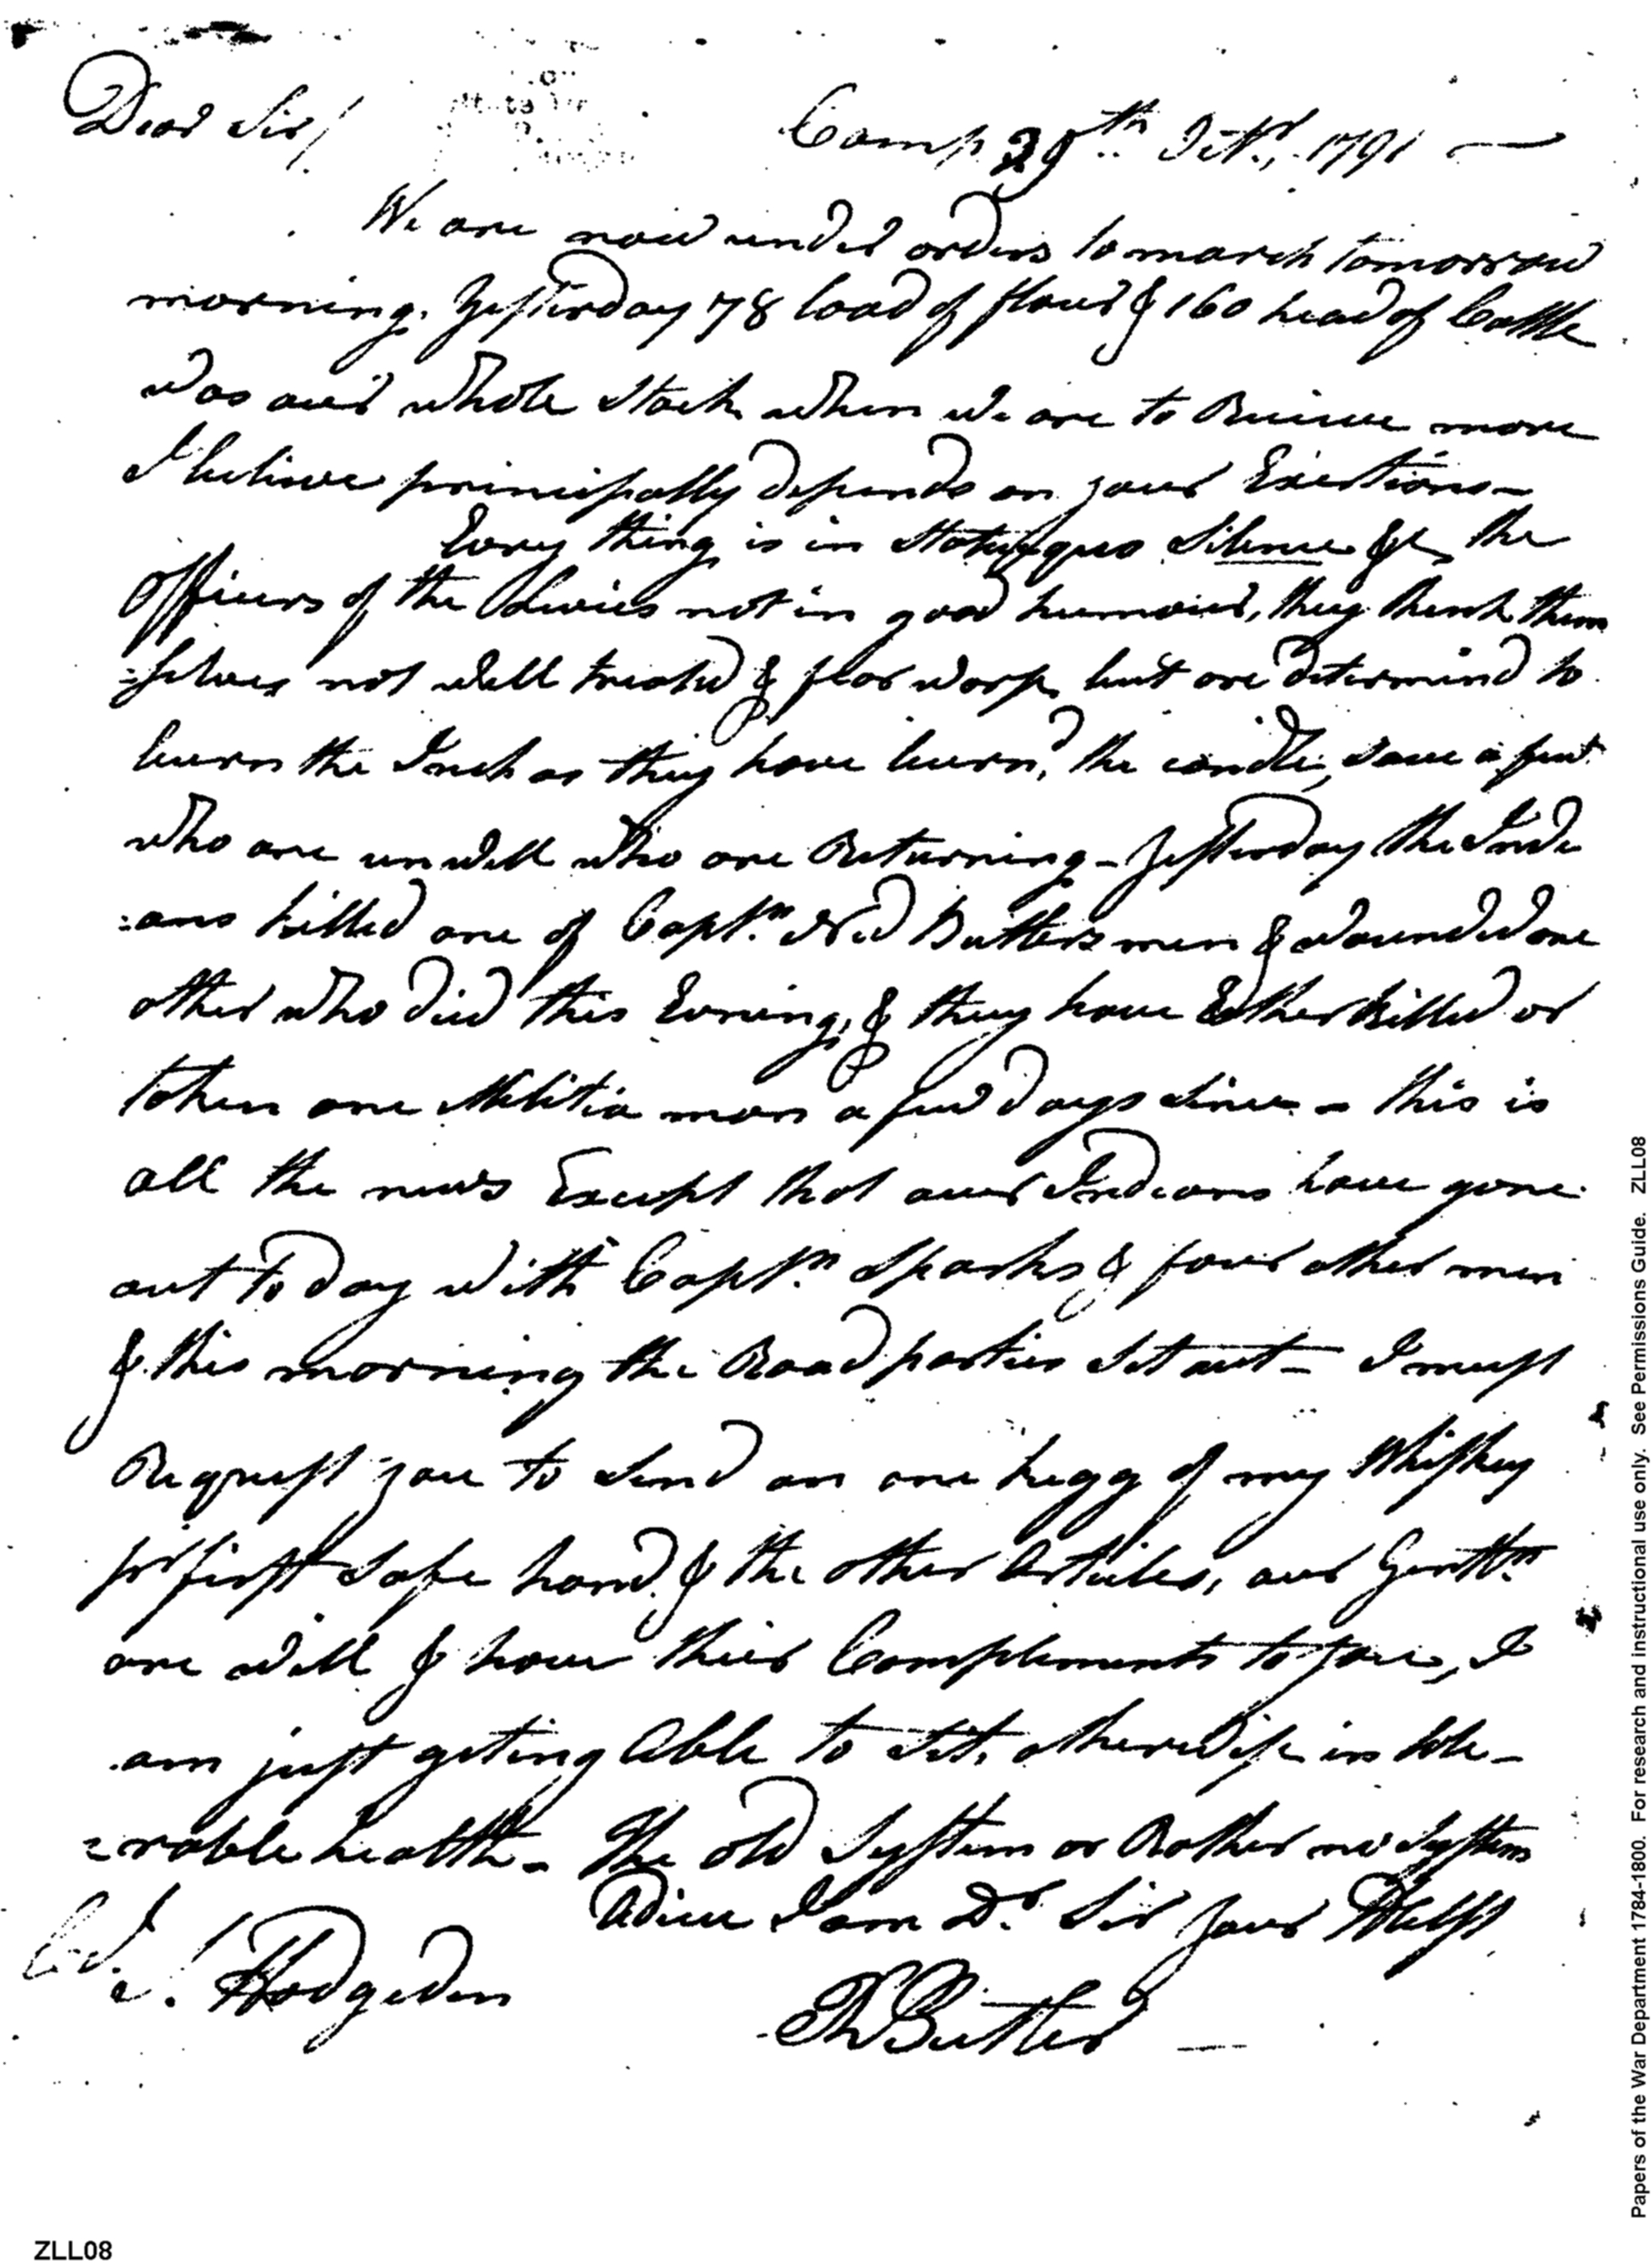 Dear Sir/
Camp 29th Octr, 1791 —
We are now under orders to march tomorrow
morning. Yesterday 78 load of flour & 160 head of Cattle
was our whole Stock when we are to Receive more
I believe principally depends on your Exertions –
Every thing is in Statu quo Silence &c, the
Officers of the Levies not in good humour, they think them
=selves not well treated & fear worse, but are determind to
burn the Inch as they have burn'd the candle, save a few
who are unwell who are Returning – Yesterday the Indi
=ans killed one of Captn. Ned Butlers men & wounded one
other who died this Evening, & they have Either killed or
taken one Militia man a few days since – this is
all the news Except that our Indians have gone
out to day with Captn. Sparks & four other men
& this morning the Road parties set out – I must
Request you to send on one kegg of my Whiskey
pr first safe hand, & the other Articles, our Gentln.
are well & have their Compliments to you, I
am just geting Able to sit, otherwise in tole–
=rable health – The old System or Rather no System
Adieu I am Dr. Sir Your
J. Hodgdon
Butler —
Papers of the War Department 1784-1800. For research and instructional use only. See Permissions Guide. ZLL08
ZLL08